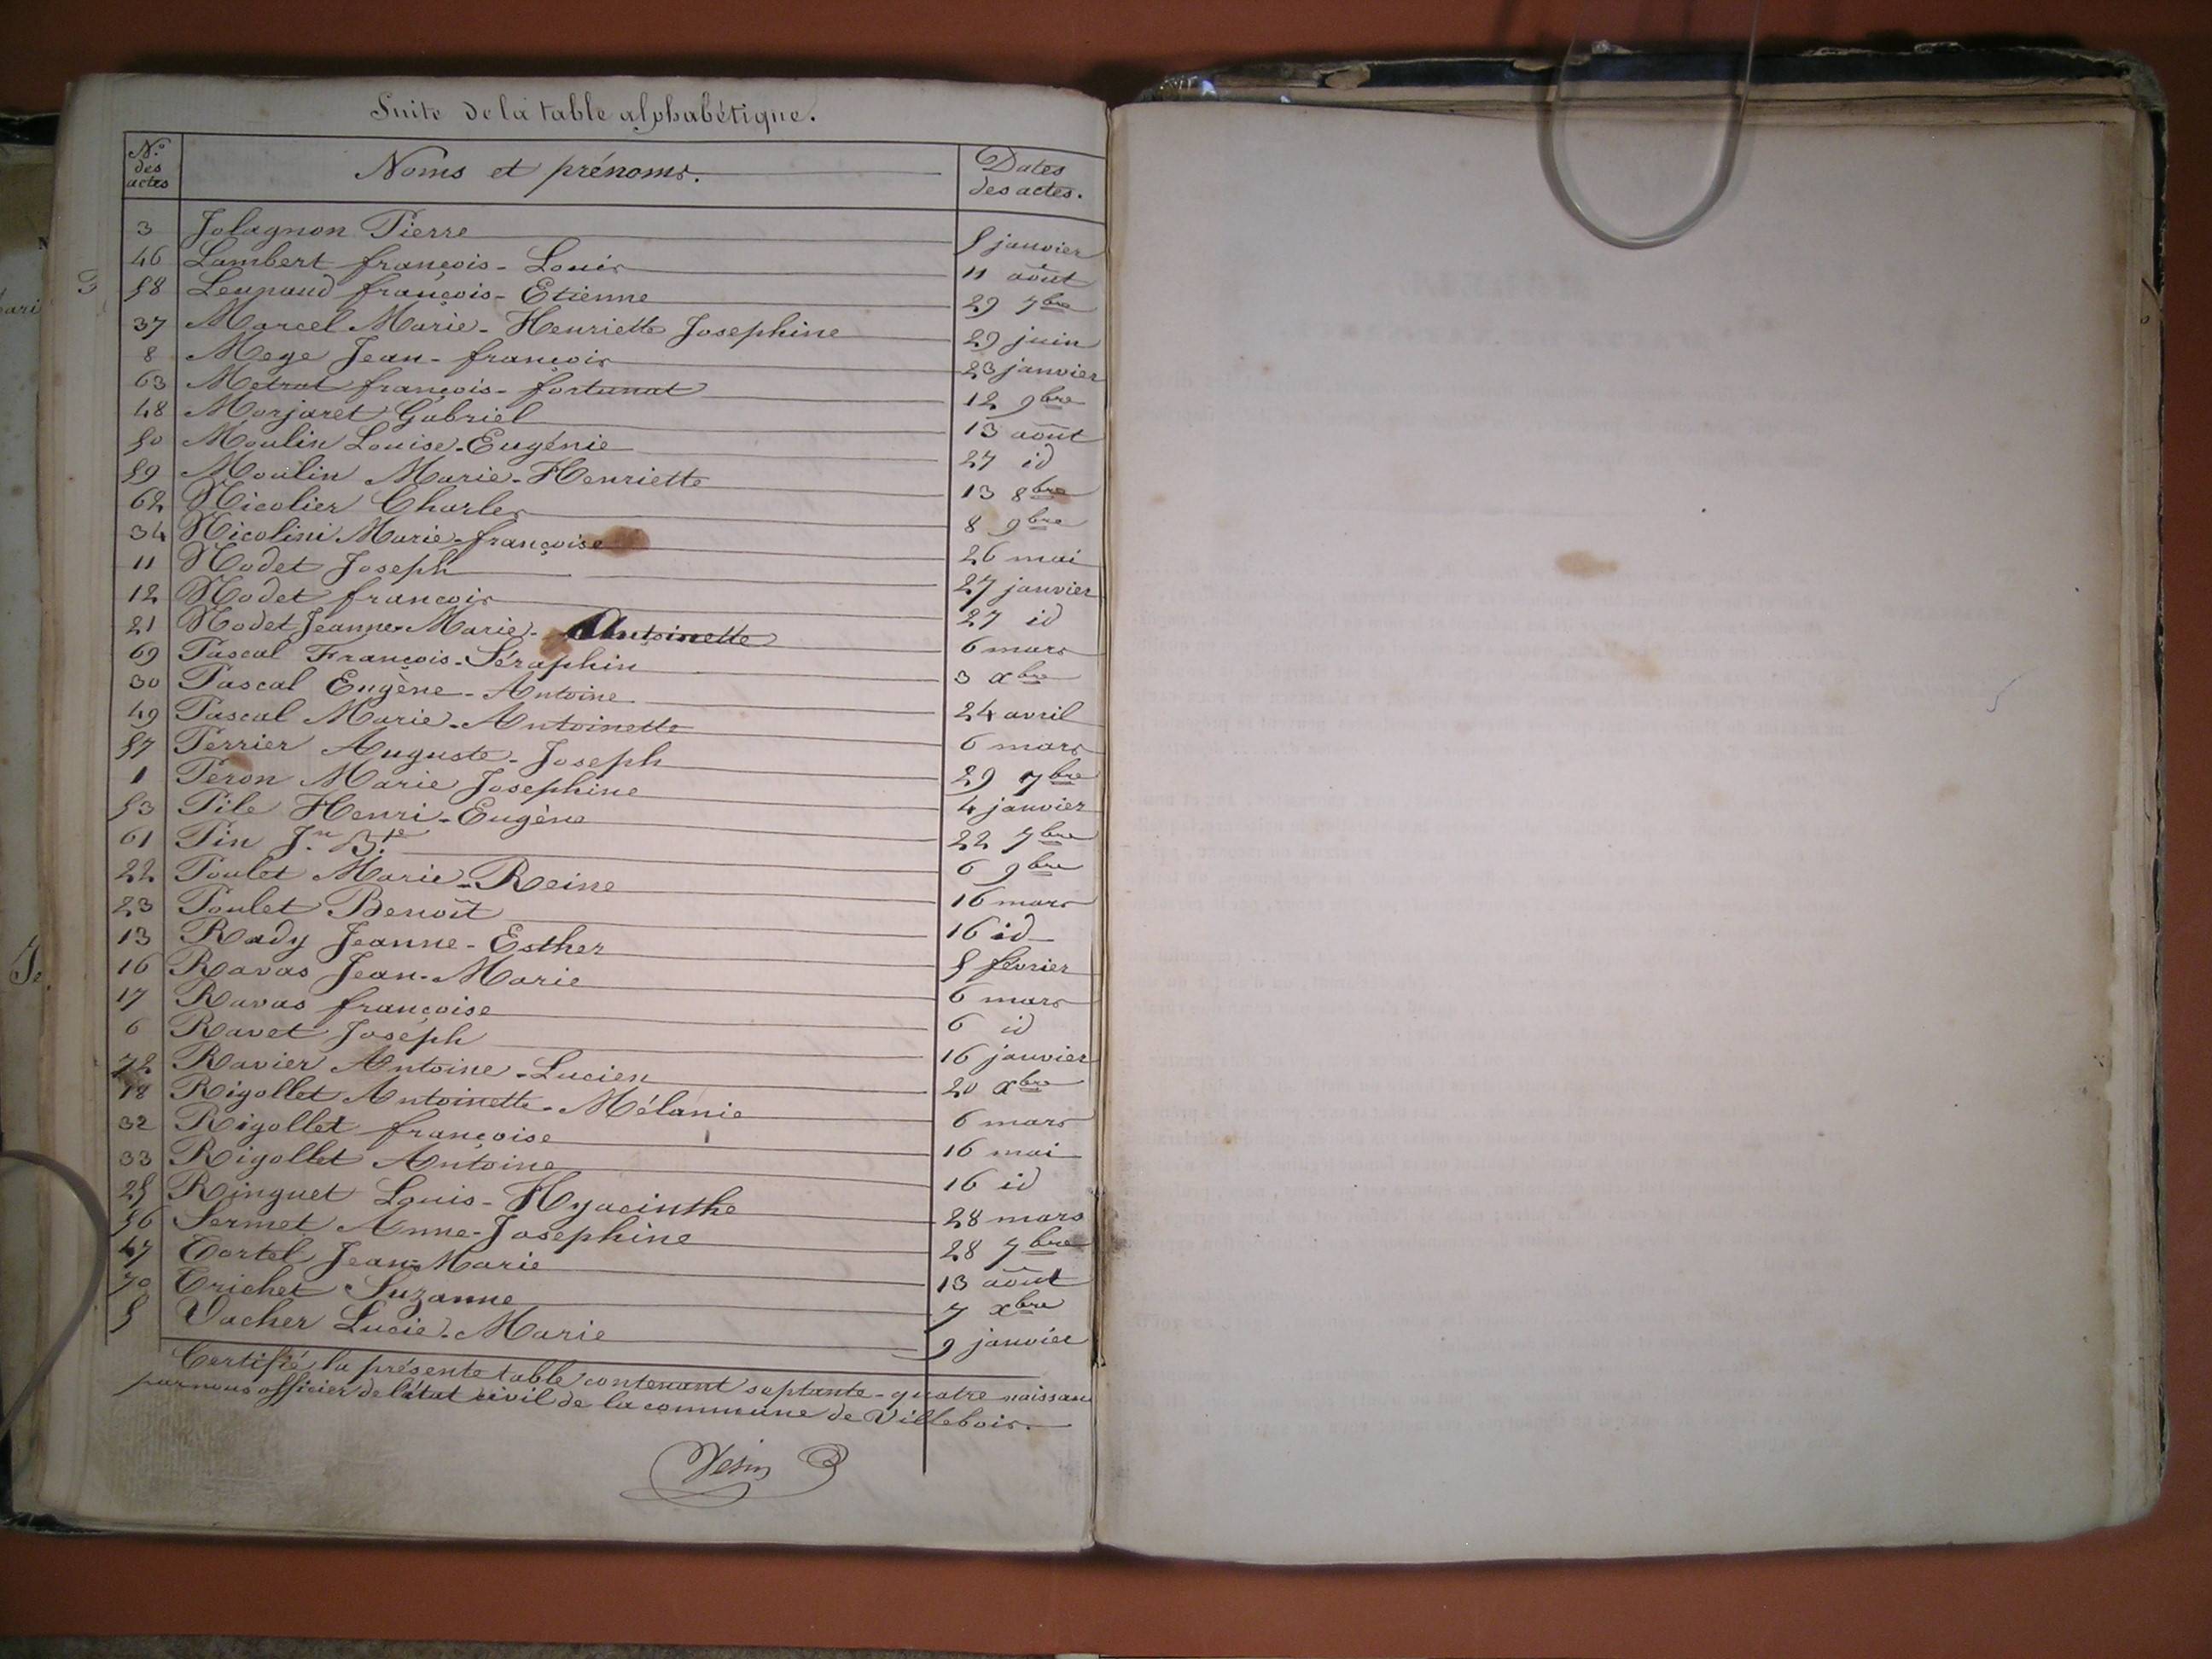 Suite de la table alphabétique.
N.º des actes Noms et prénoms. Dates des actes.
3 Jolagnon Pierre 5 janvier
46 Lambert françois-Louis 11 août
58 françois-Etienne 29 7bre
37 Marcel Marie-Henriette Josephine 29 juin
8 Mege Jean-françois 23 janvier
63 Metrat françois-fortunat 12 9bre
48 Morjaret Gabriel 13 août
50 Moulin Louise-Eugénie 27 id
59 Moulin Marie-Henriette 13 8bre
62 Nicolier Charles 8 9bre
34 Nicolini Marie-françoise 26 mai
11 Nodet Joseph 27 janvier
12 Nodet francois 27 id
21 Nodet Jeanne Marie-Antoinette 6 mars
69 Pascal François-Séraphin 3 xbre
30 Pascal Eugène-Antoine 24 avril
49 Pascal Marie-Antoinette 6 mars
57 Perrier Auguste-Joseph 29 7bre
1 Peron Marie Josephine 4 janvier
53 Pile Henri-Eugène 22 7bre
61 Pin J.n B.te 6 9bre
22 Poulet Marie-Reine 16 mars
23 Poulet Benoît 16 id
13 Rady Jeanne-Esther 5 février
16 Ravas Jean-Marie 6 mars
17 Ravas françoise 6 id
6 Ravet Joseph 16 janvier
72 Ravier Antoine-Lucien 20 xbre
18 Rigollet Antoinette-Mélanie 6 mars
32 Rigollet françoise 16 mai
33 Rigollet Antoine 16 id
25 Ringuet Louis-Hyacinthe 28 mars
56 Sermet Anne-Josephine 28 7bre
47 Tortel Jean-Marie 13 août
70 Trichet Suzanne 7 xbre
5 Vacher Lucie-Marie 9 janvier
Certifié la présente table contenant septante-quatre naissan
par nous officier de l'état civil de la commune de Villebois.